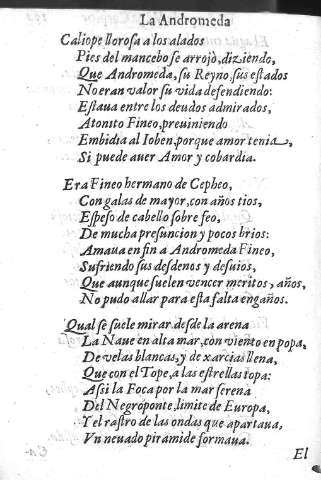 La Andromeda
Caliope llorosa a los alados
Pies del mancebo se arrojò, diziendo,
Que Andromeda, su Reyno, sus estados
No eran valor su vida defendiendo:
Estaua entre los deudos admirados,
Atonito Fineo, preuiniendo
Embidia al Iouen, porque amor tenia,
Si puede auer Amor y cobardia.
Era Fineo hermano de Cepheo,
Con galas de mayor, con años tios,
Espeso de cabello sobre feo,
De mucha presuncion y pocos brios:
Amaua en fin a Andromeda Fineo,
Sufriendo sus desdenes y desuios,
Que aunque suelen vencer meritos, años,
No pudo allar para esta falta engaños.
Qual se suele mirar desde la arena
La Naue en alta mar, con viento en popa,
De velas blancas, y de xarcias llena,
Que con el Tope, a las estrellas topa:
Assi la Foca por la mar serena
Del Negroponte, limite de Europa,
Y el rastro de las ondas que apartaua,
Vn neuado piramide formaua.
El